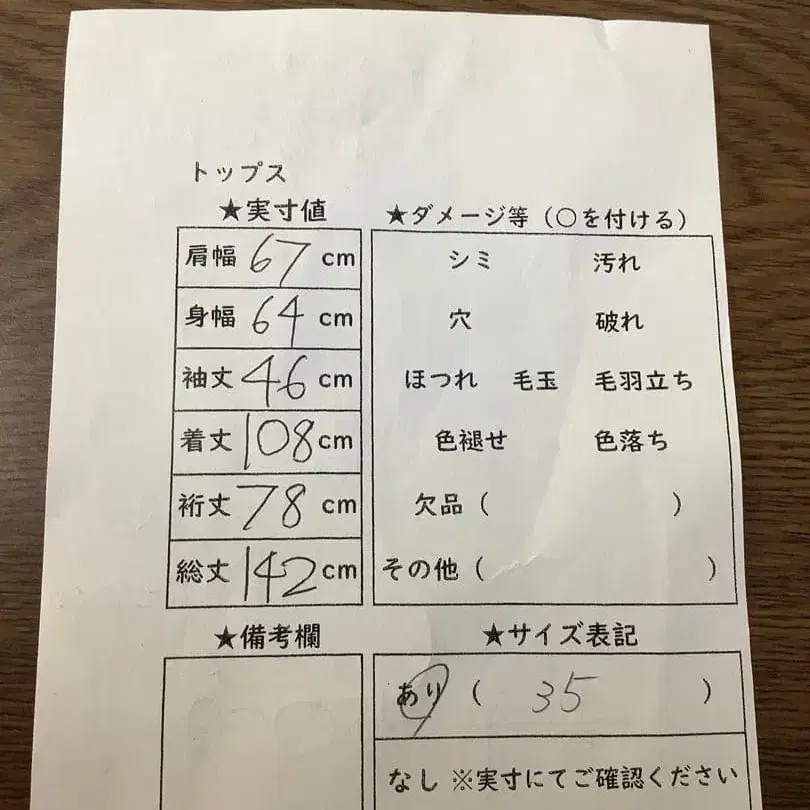 トップス
★実寸値
肩幅 67 cm
身幅 64 cm
袖丈 46 cm
着丈 108 cm
裄丈 78 cm
総丈 142 cm
★ダメージ等（○を付ける）
シミ 汚れ
穴 破れ
ほつれ 毛玉 毛羽立ち
色褪せ 色落ち
欠品（ ）
その他（ ）
★備考欄
★サイズ表記
あり（ 35 ）
なし ※実寸にてご確認ください